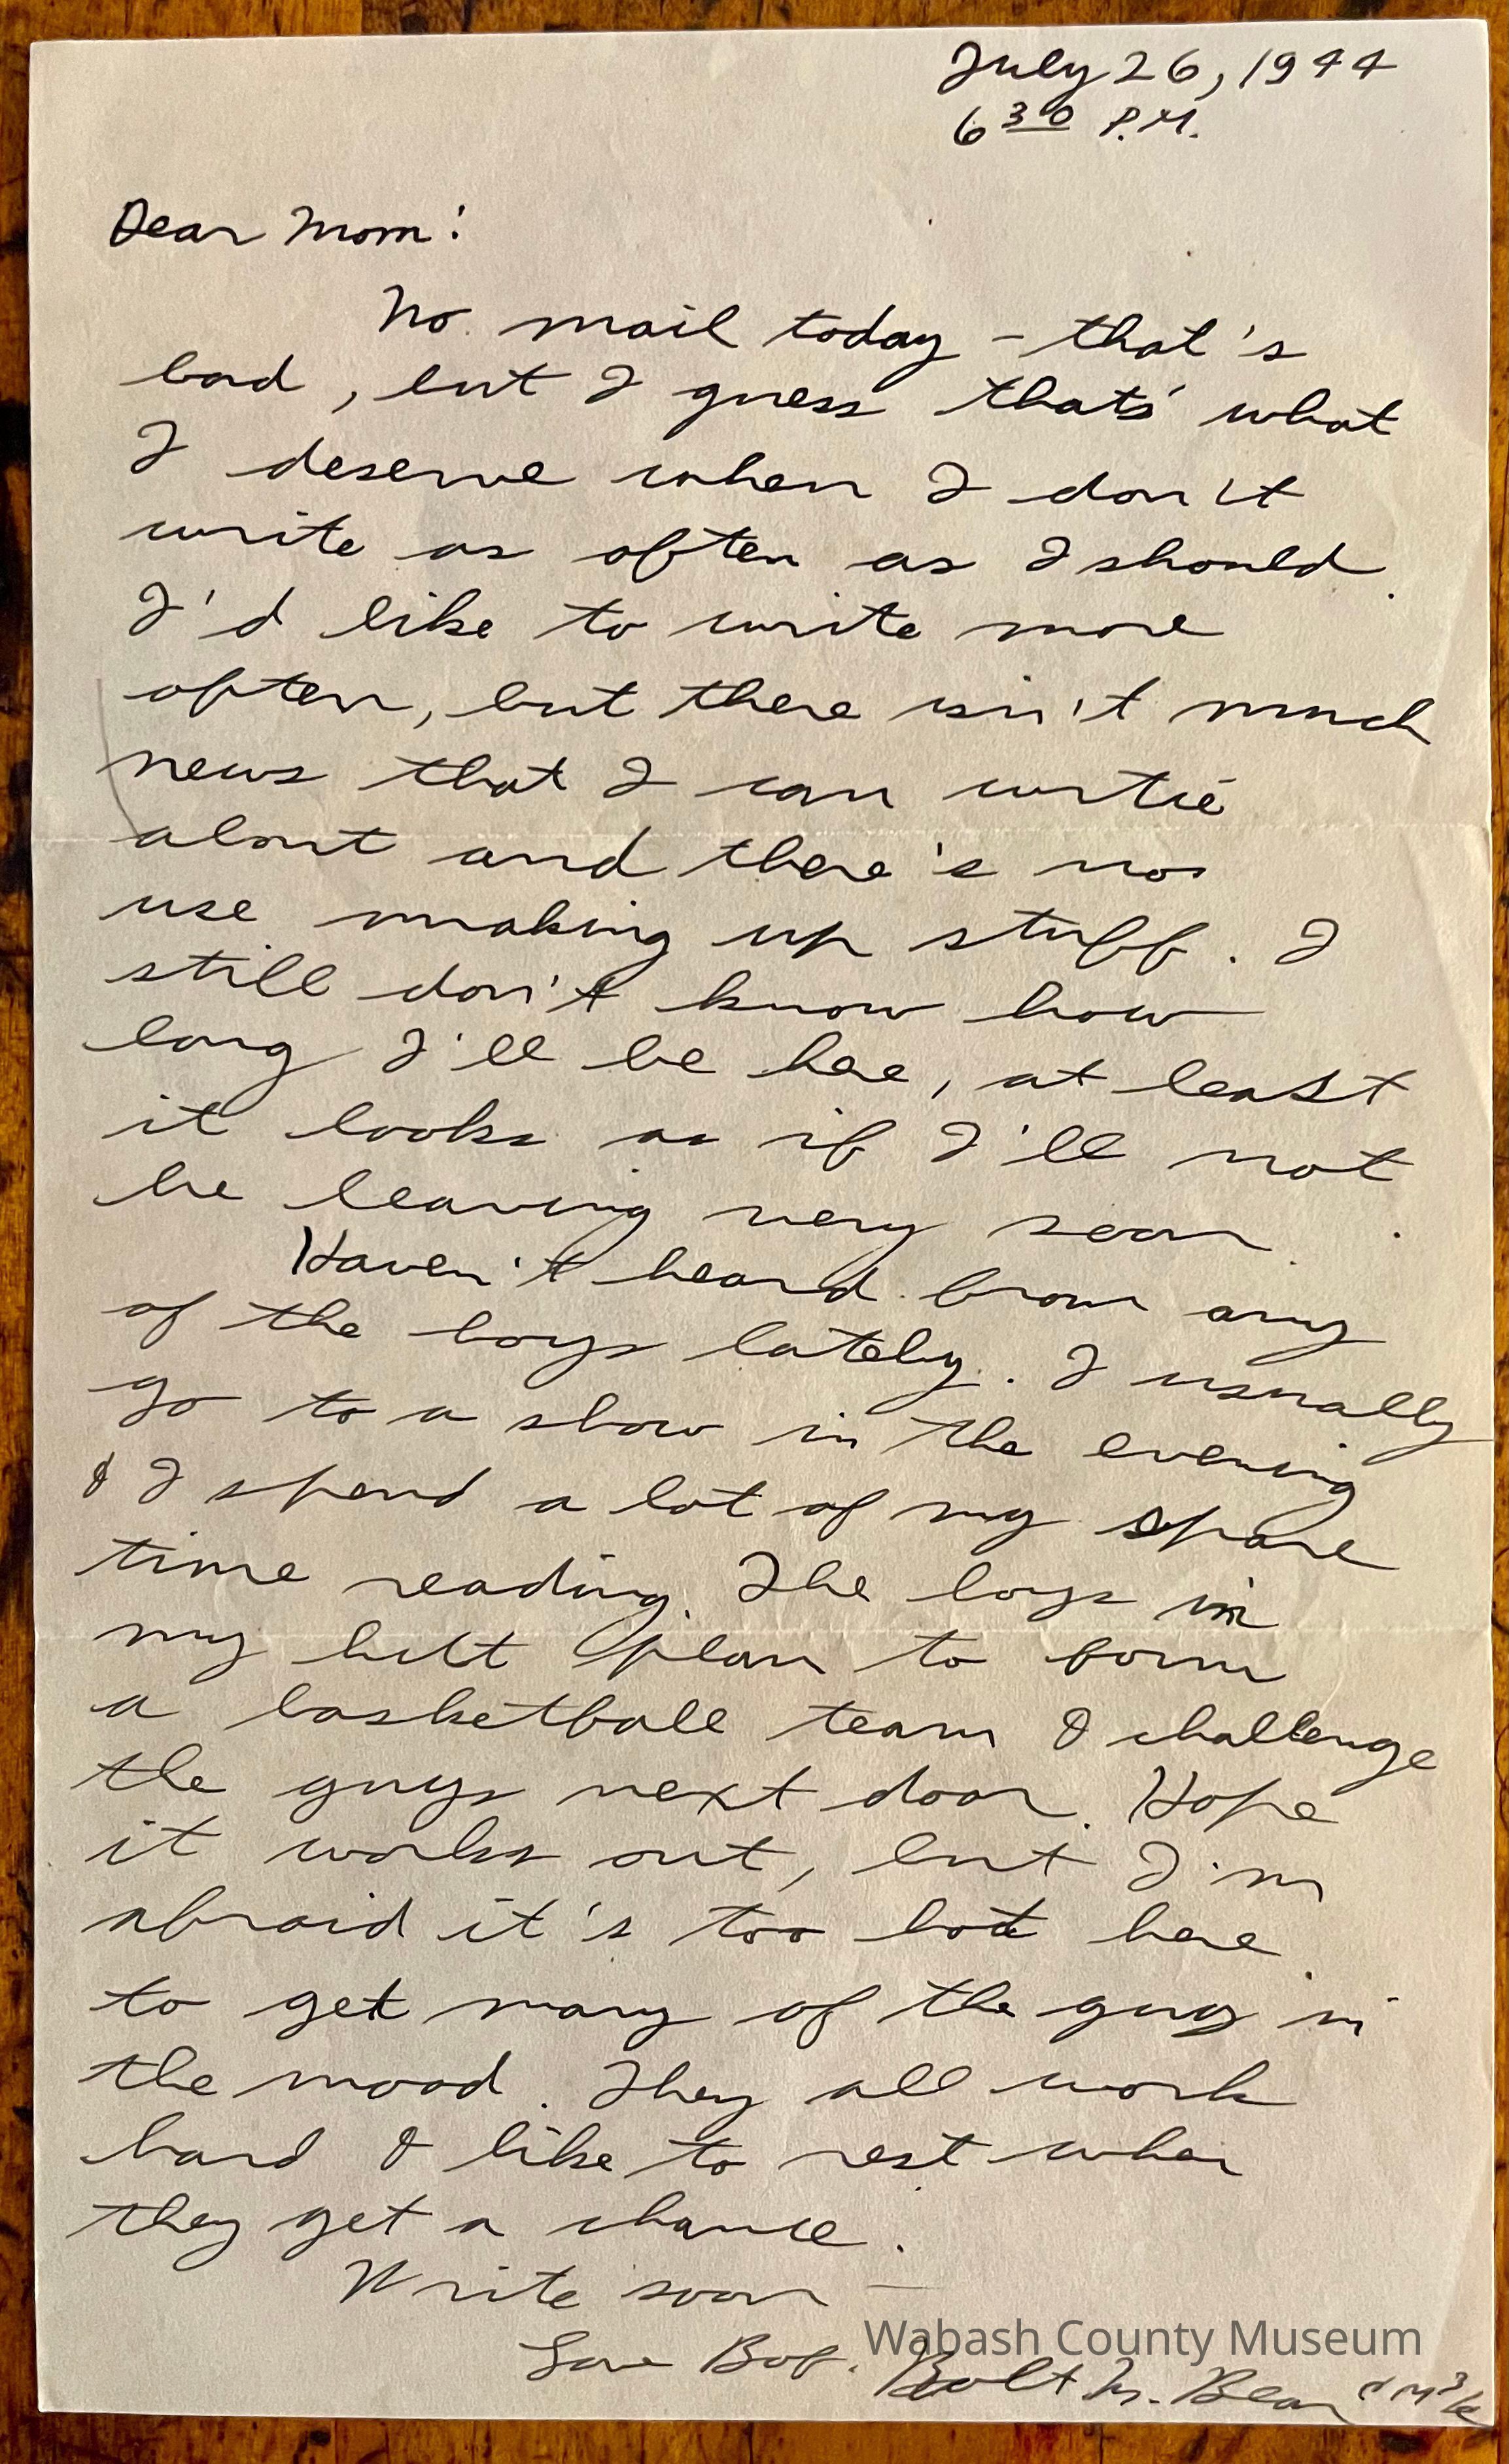 July 26, 1944
6 30 P.M.
Dear Mom:
No mail today - that's
bad, but I guess thats' what
I deserve when I don't
write as often as I should.
I'd like to write more
often, but there isn't much
news that I can wrtie
about and there's no
use making up stuff. I
still don't know how
long I'll be here, at least
it looks as if I'll not
be leaving very soon.
Haven't heard from any
of the boys lately. I usually
go to a show in the evening
& I spend a lot of my spare
time reading. The boys in
my hut plan to form
a basketball team & challenge
the guys next door. Hope
it works out, but I'm
afraid it's too hot here
to get many of the guys in
the mood. They all work
hard & like to rest when
they get a chance.
Write soon —
Love Bob.
Wabash County Museum
M.